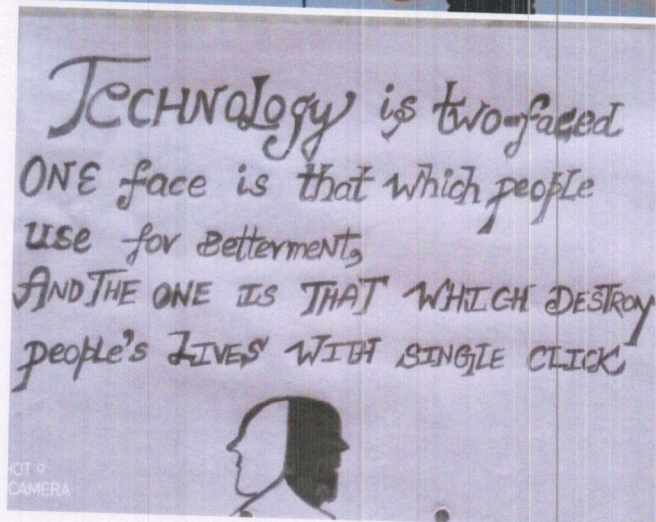 Technology is two-faced
ONE face is that which people
use for Betterment,
AND THE ONE IS THAT WHICH DESTROY
people's LIVES WITH SINGLE CLICK
HOT 9
CAMERA